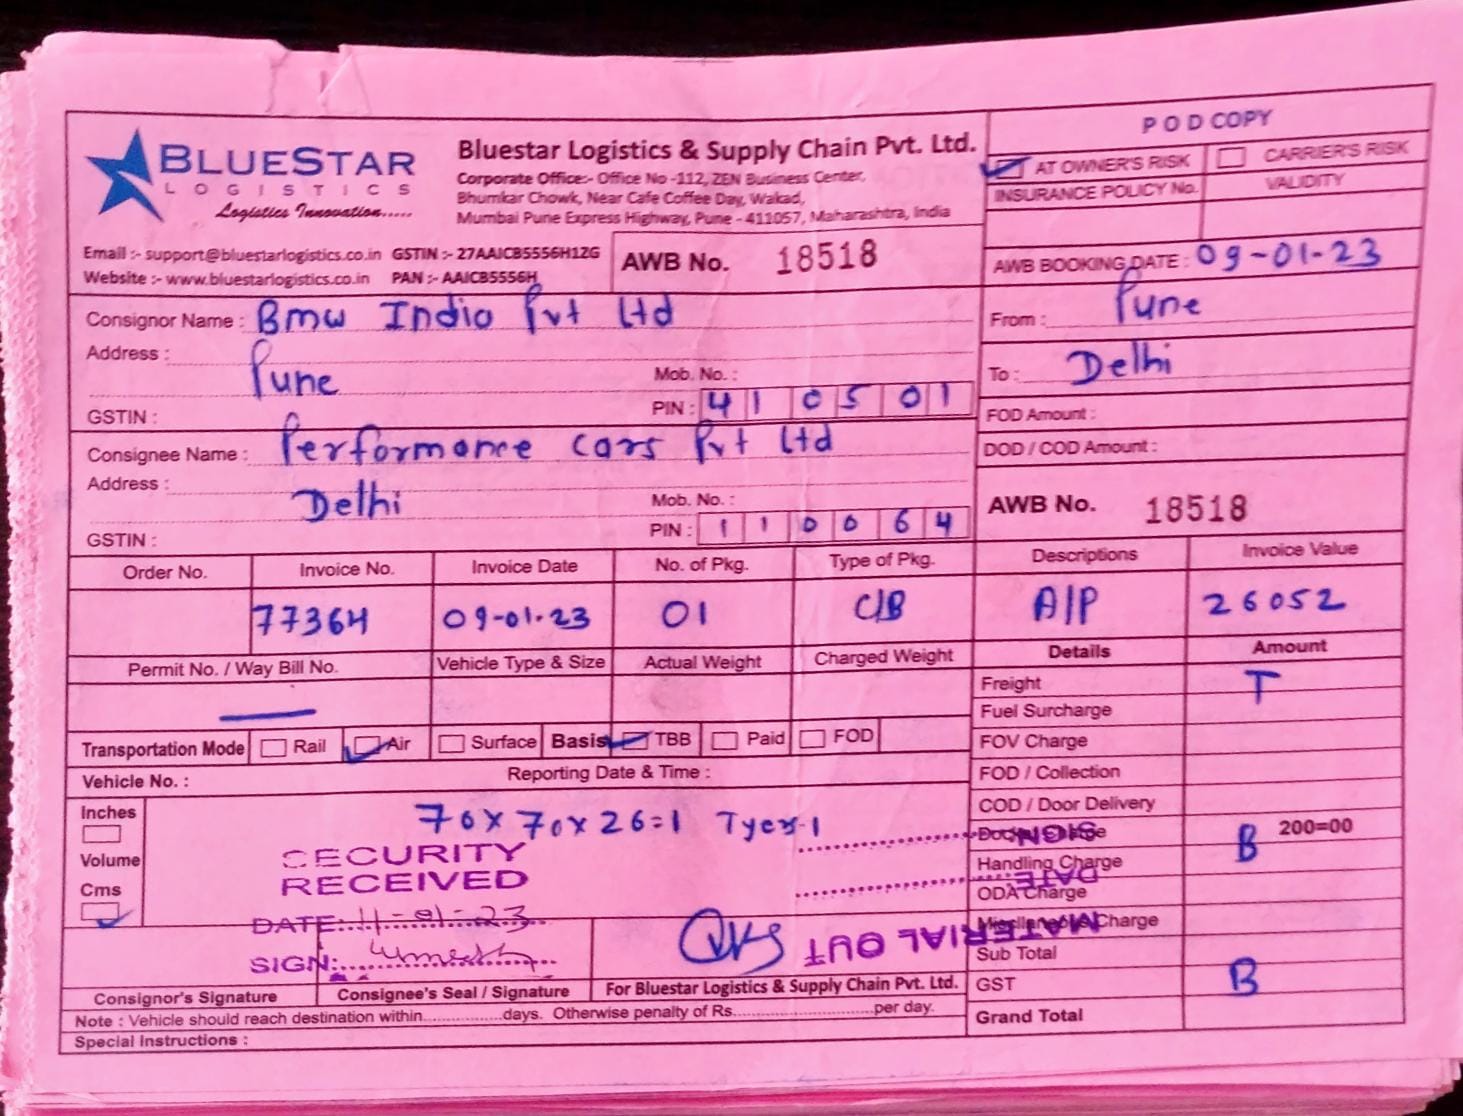 POD COPY
BLUESTAR
LOGISTICS
Logistics Innovation.....
Bluestar Logistics & Supply Chain Pvt. Ltd.
Corporate Office:- Office No -112, ZEN Business Center,
Bhumkar Chowk, Near Cafe Coffee Day, Wakad,
Mumbai Pune Express Highway, Pune - 411057, Maharashtra, India
AT OWNER'S RISK CARRIER'S RISK
INSURANCE POLICY No. VALIDITY
Email :- support@bluestarlogistics.co.in GSTIN :- 27AAICB5556H1ZG
Website :- www.bluestarlogistics.co.in PAN :- AAICB5556H
AWB No. 18518
AWB BOOKING DATE : 09-01-23
Consignor Name : Bmw India Pvt Ltd
From : Pune
Address : Pune
Mob. No. :
To : Delhi
GSTIN :
PIN : 410501
FOD Amount :
Consignee Name : Performance cars Pvt Ltd
DOD / COD Amount :
Address : Delhi
Mob. No. :
AWB No. 18518
GSTIN :
PIN : 110064
Order No. Invoice No. Invoice Date No. of Pkg. Type of Pkg. Descriptions Invoice Value
77364 09-01-23 01 C/B A/P 26052
Permit No. / Way Bill No. Vehicle Type & Size Actual Weight Charged Weight Details Amount
Freight T
Fuel Surcharge
Transportation Mode Rail Air Surface Basis TBB Paid FOD
FOV Charge
Vehicle No. : Reporting Date & Time :
FOD / Collection
Inches
COD / Door Delivery
70x70x26=1 Tyer-1
200=00
SIGN
Volume
SECURITY
RECEIVED
Handling Charge B
DATE
Cms
ODA Charge
DATE: 11-01-23
Miscllaneous Charge
MATERIAL OUT
SIGN:
Sub Total
GST B
Consignor's Signature Consignee's Seal / Signature For Bluestar Logistics & Supply Chain Pvt. Ltd.
Grand Total
Note : Vehicle should reach destination within..................days. Otherwise penalty of Rs..............................per day.
Special Instructions :